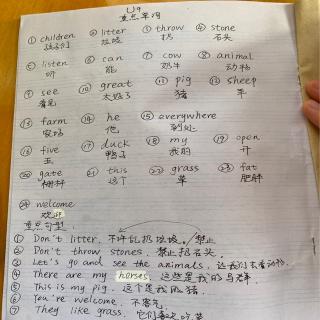 U9
重点单词
① children ② litter ③ throw ④ stone
孩子们 垃圾 扔 石头
⑤ listen ⑥ can ⑦ cow ⑧ animal
听 能 奶牛 动物
⑨ see ⑩ great ⑪ pig ⑫ sheep
看见 太好了 猪 羊
⑬ farm ⑭ he ⑮ everywhere
农场 他 到处
⑯ five ⑰ duck ⑱ my ⑲ open
五 鸭子 我的 开
⑳ gate ㉑ this ㉒ grass ㉓ fat
这个 草 肥胖
㉔ welcome
欢迎
重点句型:
① Don't litter. 不许乱扔垃圾. /禁止
② Don't throw stones. 禁止扔石头.
③ Let's go and see the animals. 让我们去看动物.
④ There are my horses. 这些是我的马群.
⑤ This is my pig. 这个是我的猪.
⑥ You're welcome. 不客气.
⑦ They like grass. 它们喜欢吃草